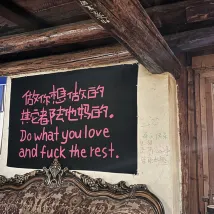 做你想做的
其它者陪他妈的.
Do what you love
and fuck the rest.